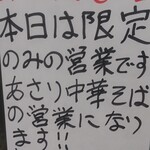 本日は限定
のみの営業です
あさり中華そば
の営業になり
ます!!